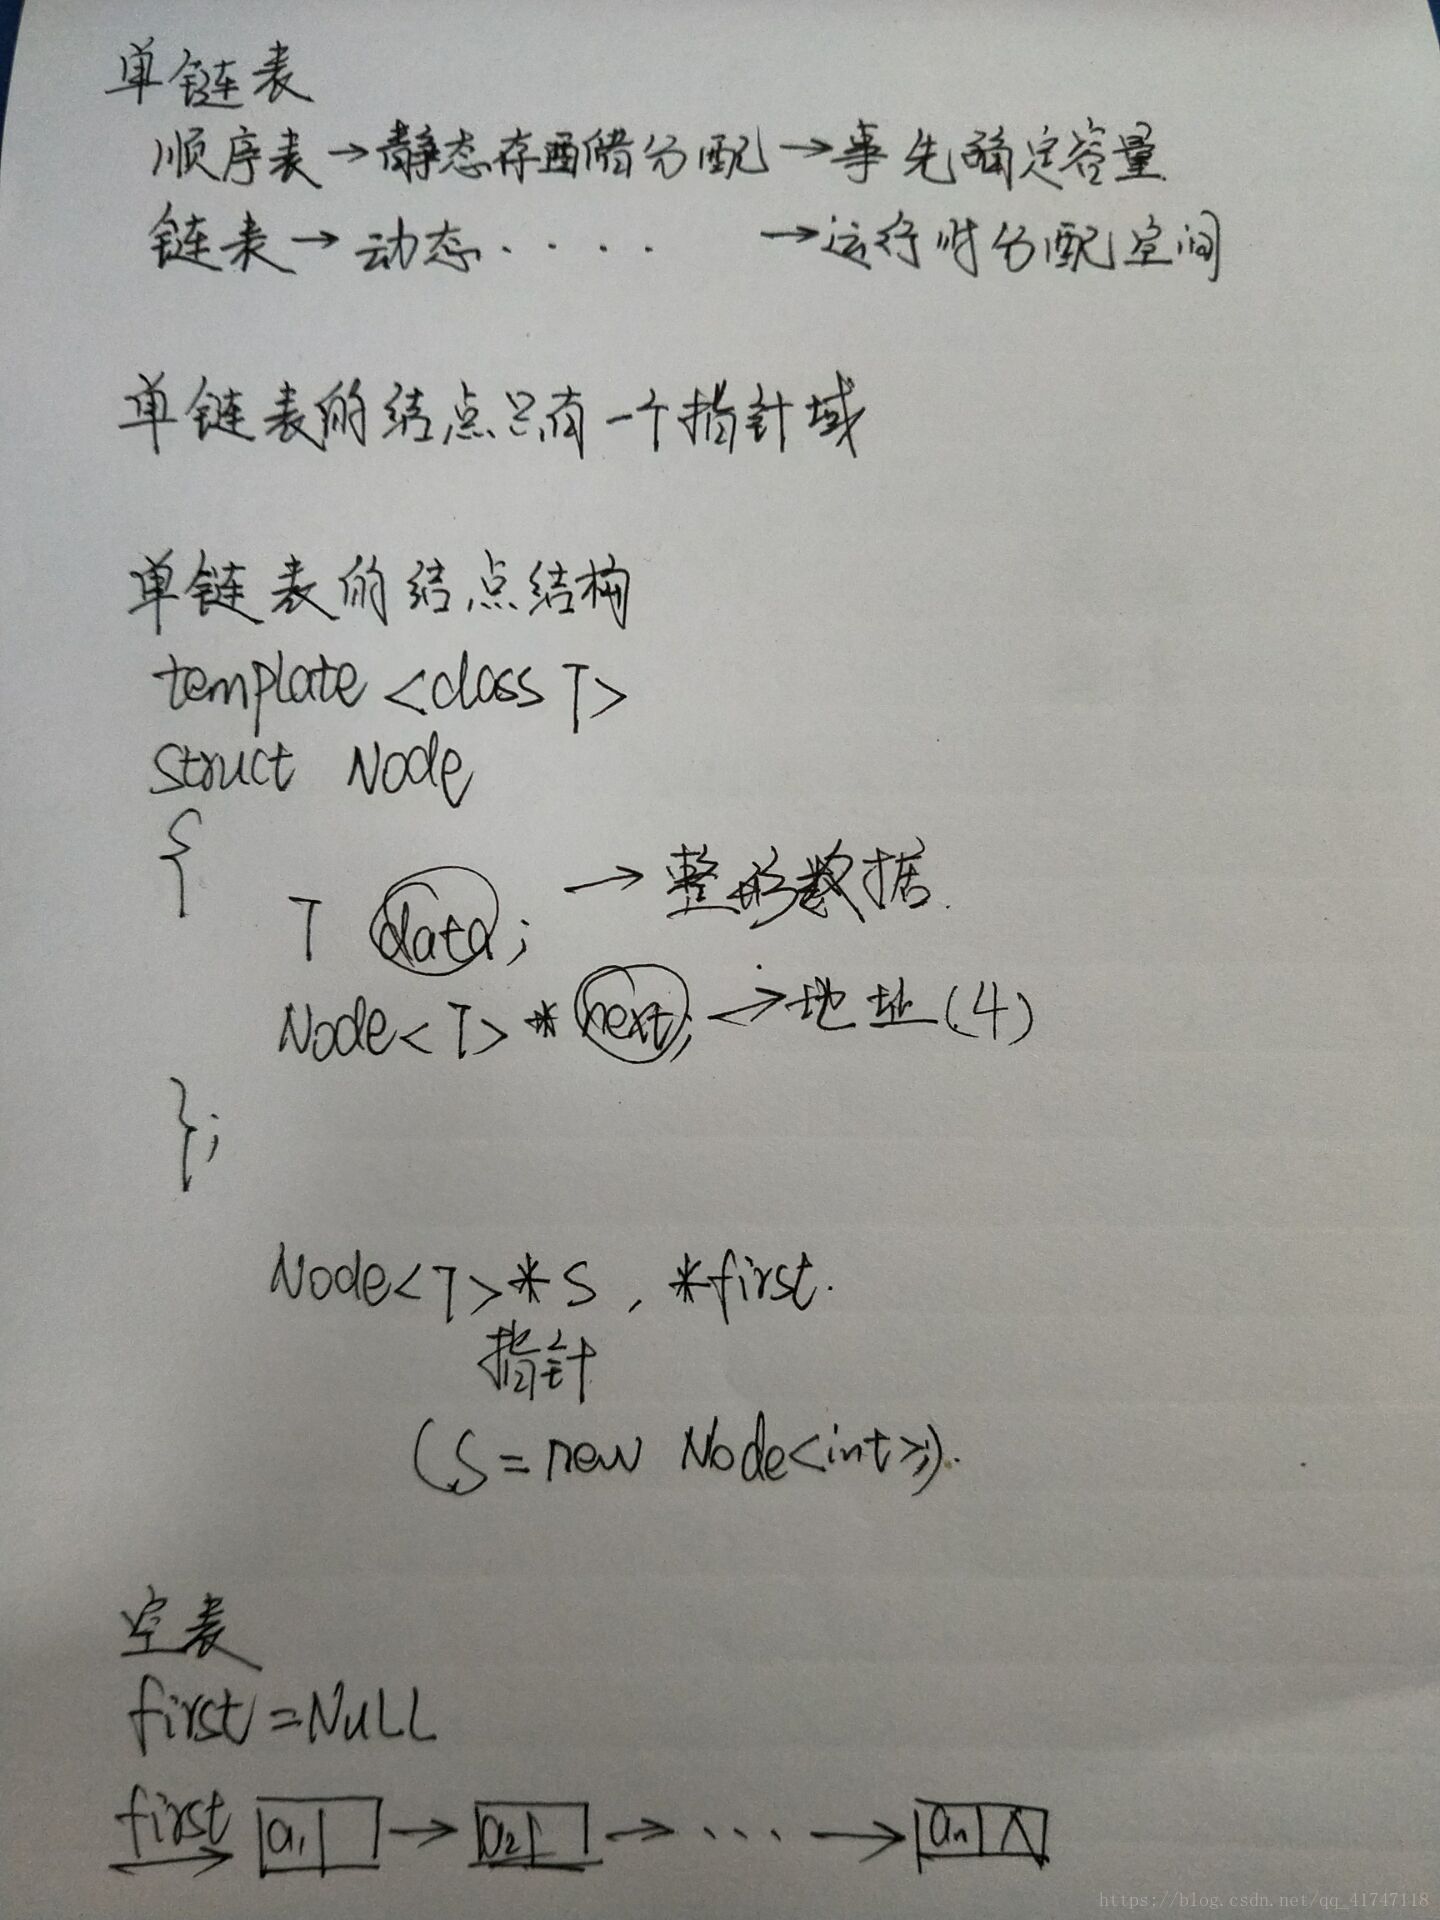 单链表
顺序表→静态存储分配→事先确定容量
链表→动态·····→运行时分配空间
单链表的结点只有一个指针域
单链表的结点结构
template <class T>
struct Node
{
T data; →整形数据.
Node<T> * next; →地址(4)
};
Node<T>*s, *first.
指针
(s=new Node<int>;).
空表
first=NULL
first a₁ → a₂ → ··· → aₙ ∧
https://blog.csdn.net/qq_41747118